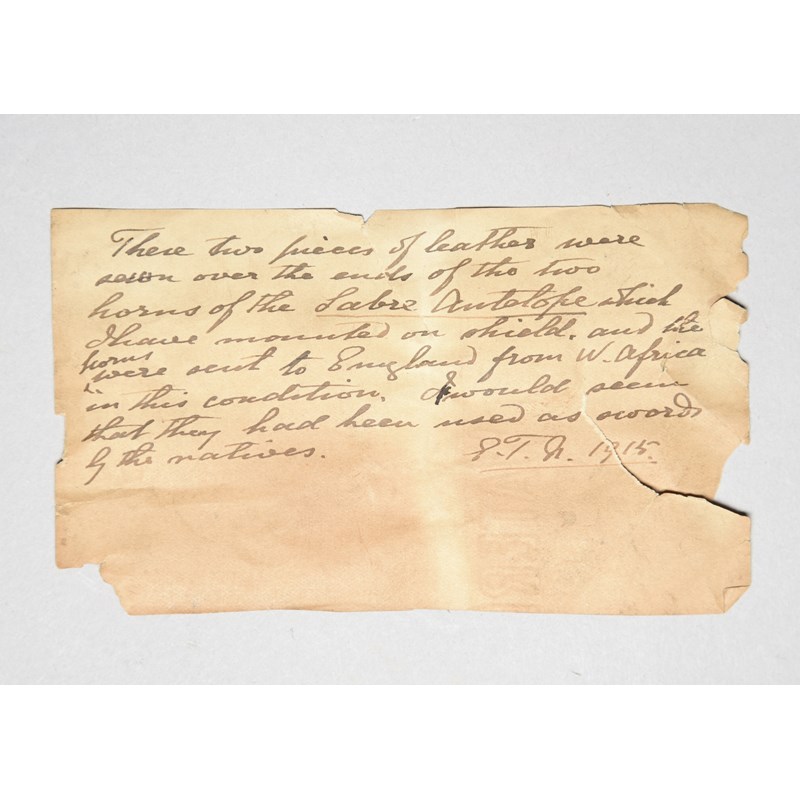 These two pieces of leather were
sewn over the ends of the two
horns of the Sabre Antelope which
I have mounted on shield, and the
horns
were sent to England from W. Africa
in this condition. It would seem
that they had been used as swords
by the natives.
E.T.N. 1915.